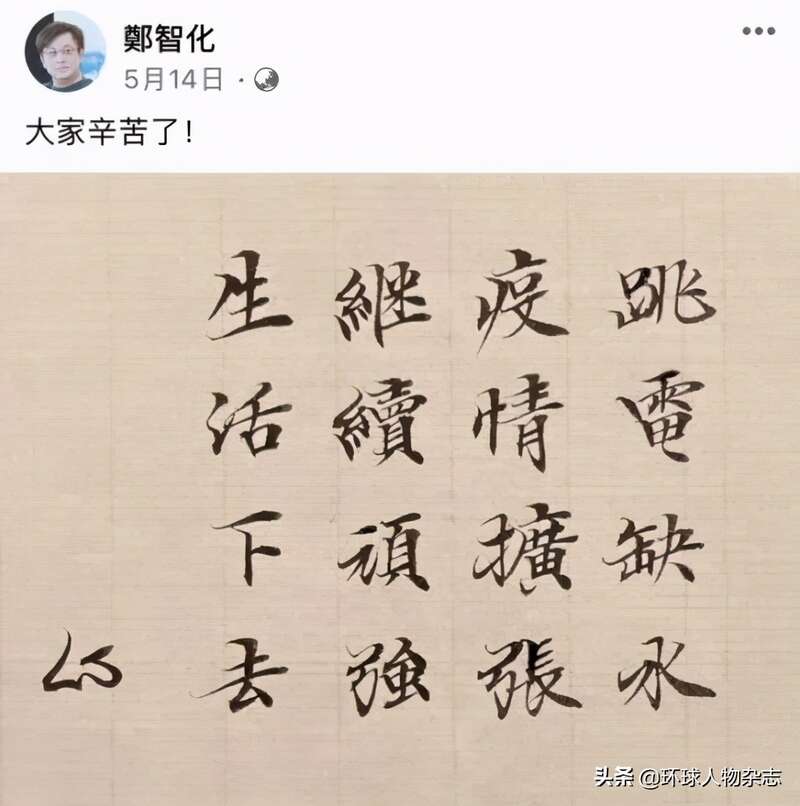 鄭智化
5月14日 ·
大家辛苦了!
跳電缺水
疫情擴張
繼續頑強
生活下去
头条 @环球人物杂志